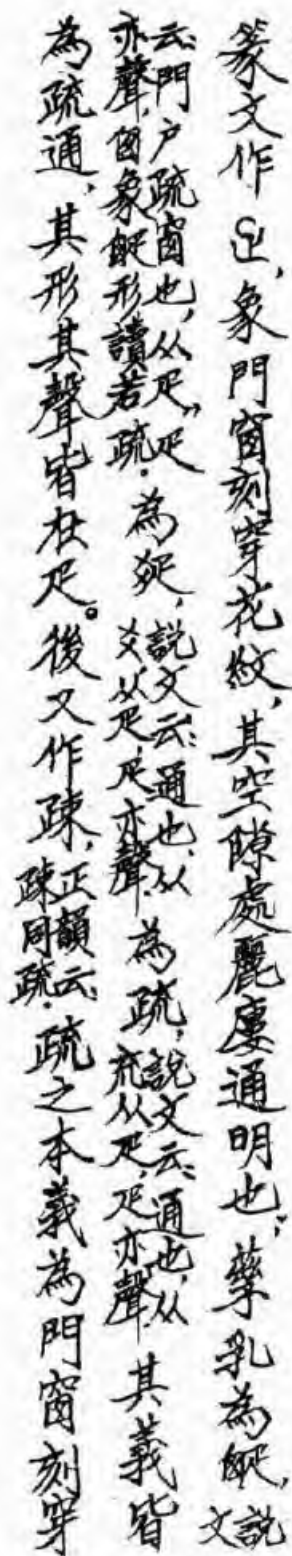 篆文作疋，象門窗刻穿花紋，其空隙處麗廔通明也，孳乳為𤴙，說文
云：門户疏窗也，从疋，疋亦聲，囱象𤴙形，讀若疏。為𤕟，說文云：通也，从爻从疋，疋亦聲。為疏，說文云：通也，从㐬从疋，疋亦聲。其義皆
為疏通，其形其聲皆在疋。後又作疎，正韻云：疎同疏。疏之本義為門窗刻穿